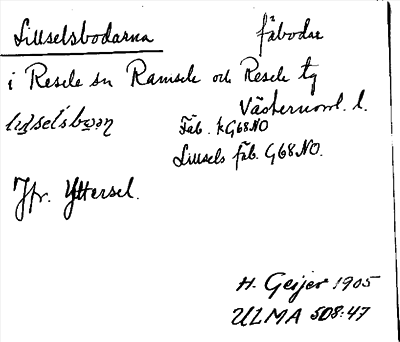 Lillselsbodarna fäbodar
i Resele sn Ramsele och Resele tg
Västernorrl. l.
Fäb. kG68NO
Lillsels fäb. G68NO.
Jfr. Yttersel.
H. Geijer 1905
ULMA 508:47